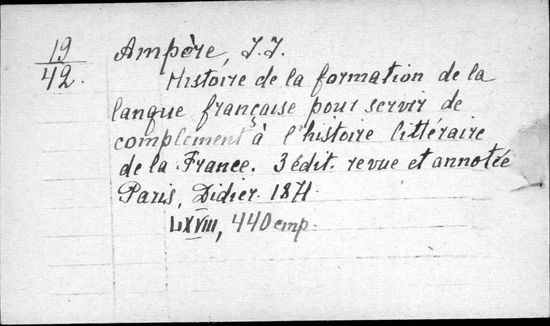 19 Ampère, J.J.
42. Histoire de la formation de la
langue française pour servir de
complément à l'histoire littéraire
de la France. 3 édit. revue et annotée
Paris, Didier. 1871.
LXVIII, 440 стр.